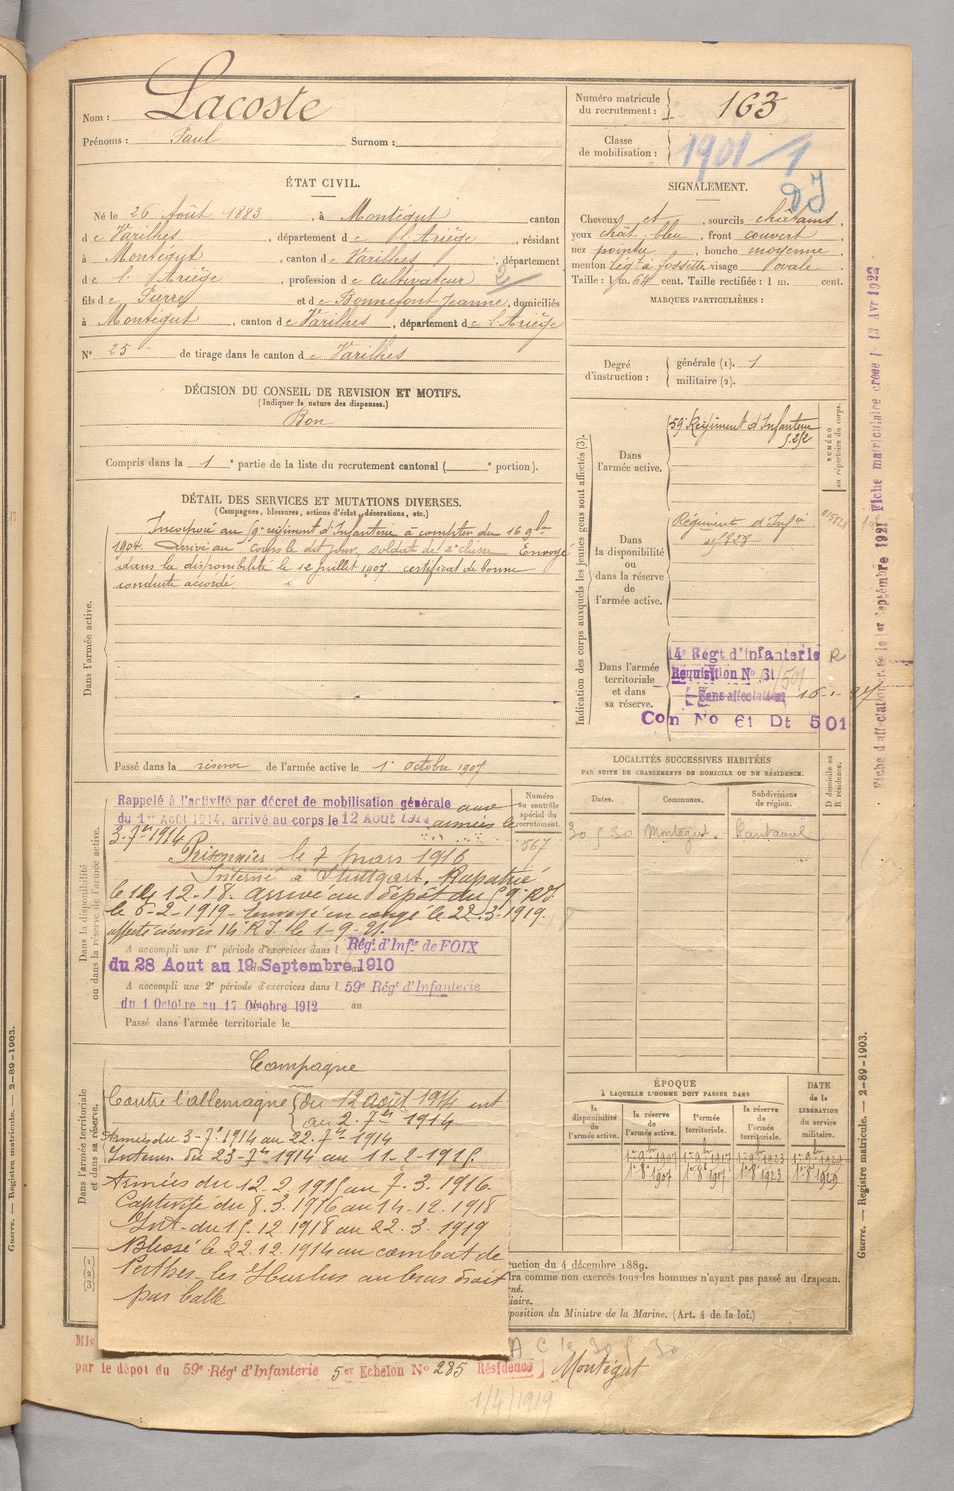 Nom : Lacoste
Prénoms : Paul Surnom :
Numéro matricule du recrutement : 163
Classe de mobilisation : 1901/1
ÉTAT CIVIL.
Né le 26 Août 1883, à Montégut canton
de Varilhes, département de l'Ariège, résidant
à Montégut, canton de Varilhes, département
de l'Ariège, profession de cultivateur 2
fils de Pierre et de Bonnefont Jeanne, domiciliés
à Montégut, canton de Varilhes, département de l'Ariège
N° 25 de tirage dans le canton de Varilhes
SIGNALEMENT.
DJ
Cheveux et, sourcils châtains,
yeux chât. bleu, front couvert,
nez pointu, bouche moyenne
menton lég. à fossette visage ovale
Taille : 1 m. 64 cent. Taille rectifiée : 1 m. cent.
MARQUES PARTICULIÈRES :
Degré d'instruction : générale (1). 1
militaire (2).
DÉCISION DU CONSEIL DE REVISION ET MOTIFS.
(Indiquer la nature des dispenses.)
Bon
Compris dans la 1e partie de la liste du recrutement cantonal ( e portion).
DÉTAIL DES SERVICES ET MUTATIONS DIVERSES.
(Campagnes, blessures, actions d'éclat, décorations, etc.)
Dans l'armée active.
Incorporé au 59e régiment d'Infanterie à compter du 16 9bre
1904. Arrivé au corps le dit jour, soldat de 2e classe. Envoyé
dans la disponibilité le 12 juillet 1907. certificat de bonne
conduite accordé.
Passé dans la réserve de l'armée active le 1 octobre 1907
Indication des corps auxquels les jeunes gens sont affectés (3).
NUMÉRO au répertoire du corps.
Dans l'armée active.
59e Régiment d'Infanterie
Dans la disponibilité ou dans la réserve de l'armée active.
Régiment d'Infie
Dans l'armée territoriale et dans sa réserve.
14e Régt d'Infanterie R
Requisition No 61
Sans affectation
Con No 61 Dt 501
LOCALITÉS SUCCESSIVES HABITÉES
PAR SUITE DE CHANGEMENTS DE DOMICILE OU DE RÉSIDENCE.
Dates. Communes. Subdivisions de région. D domicile ou R résidence.
30 5 30 Montégut.
Dans la disponibilité ou dans la réserve de l'armée active.
Numéro au contrôle spécial du recrutement.
567
Rappelé à l'activité par décret de mobilisation générale
du 1er Août 1914, arrivé au corps le 12 Août 1914 aux armées le
3-7bre 1914
Prisonnier le 7 mars 1916
Interné à Stuttgart. Rapatrié
le 14 12-18. arrivé au dépôt du 59e RI
le 6-2-1919. Envoyé en congé le 22.3.1919.
affecté réserves 14 R.I. le 1-9-21.
A accompli une 1re période d'exercices dans l Régt d'Infie de FOIX
du 28 Aout au 19 Septembre 1910
A accompli une 2e période d'exercices dans l 59e Régt d'Infanterie
du 1 Octobre au 17 Octobre 1912 au
Passé dans l'armée territoriale le
Dans l'armée territoriale et dans sa réserve.
Campagne
Contre l'allemagne du 12 août 1914 int
au 2. 7bre 1914
Armées du 3-7e 1914 au 22. 7bre 1914
Intérieur du 23-7bre 1914 au 11-2-1915
Armées du 12.2.1915 au 7.3.1916.
Captivité du 8.3.1916 au 14.12.1918
Int. du 15.12.1918 au 22.3.1919
Blessé le 22.12.1914 au combat de
Perthes les Hurlus au bras droit
par balle
ÉPOQUE
À LAQUELLE L'HOMME DOIT PASSER DANS
la disponibilité de l'armée active. la réserve de l'armée active. l'armée territoriale. la réserve de l'armée territoriale.
DATE de la LIBÉRATION du service militaire.
1er 8e 1907 1er 8e 1917 1er 8e 1923 1er 8e 1929
uction du 4 décembre 1889.
dra comme non exercés tous les hommes n'ayant pas passé au drapeau.
rné.
iaire.
position du Ministre de la Marine. (Art. 4 de la loi.)
A C le 30 5 30
Mis
par le dépôt du 59e Régt d'Infanterie 5er Echelon No 285 Résidence Montégut
1/4/1919
Fiche matriculaire créée l 13 Avr 1922
Guerre. — Registre matricule. — 2-89-1903.
Guerre. — Registre matricule. — 2-89-1903.